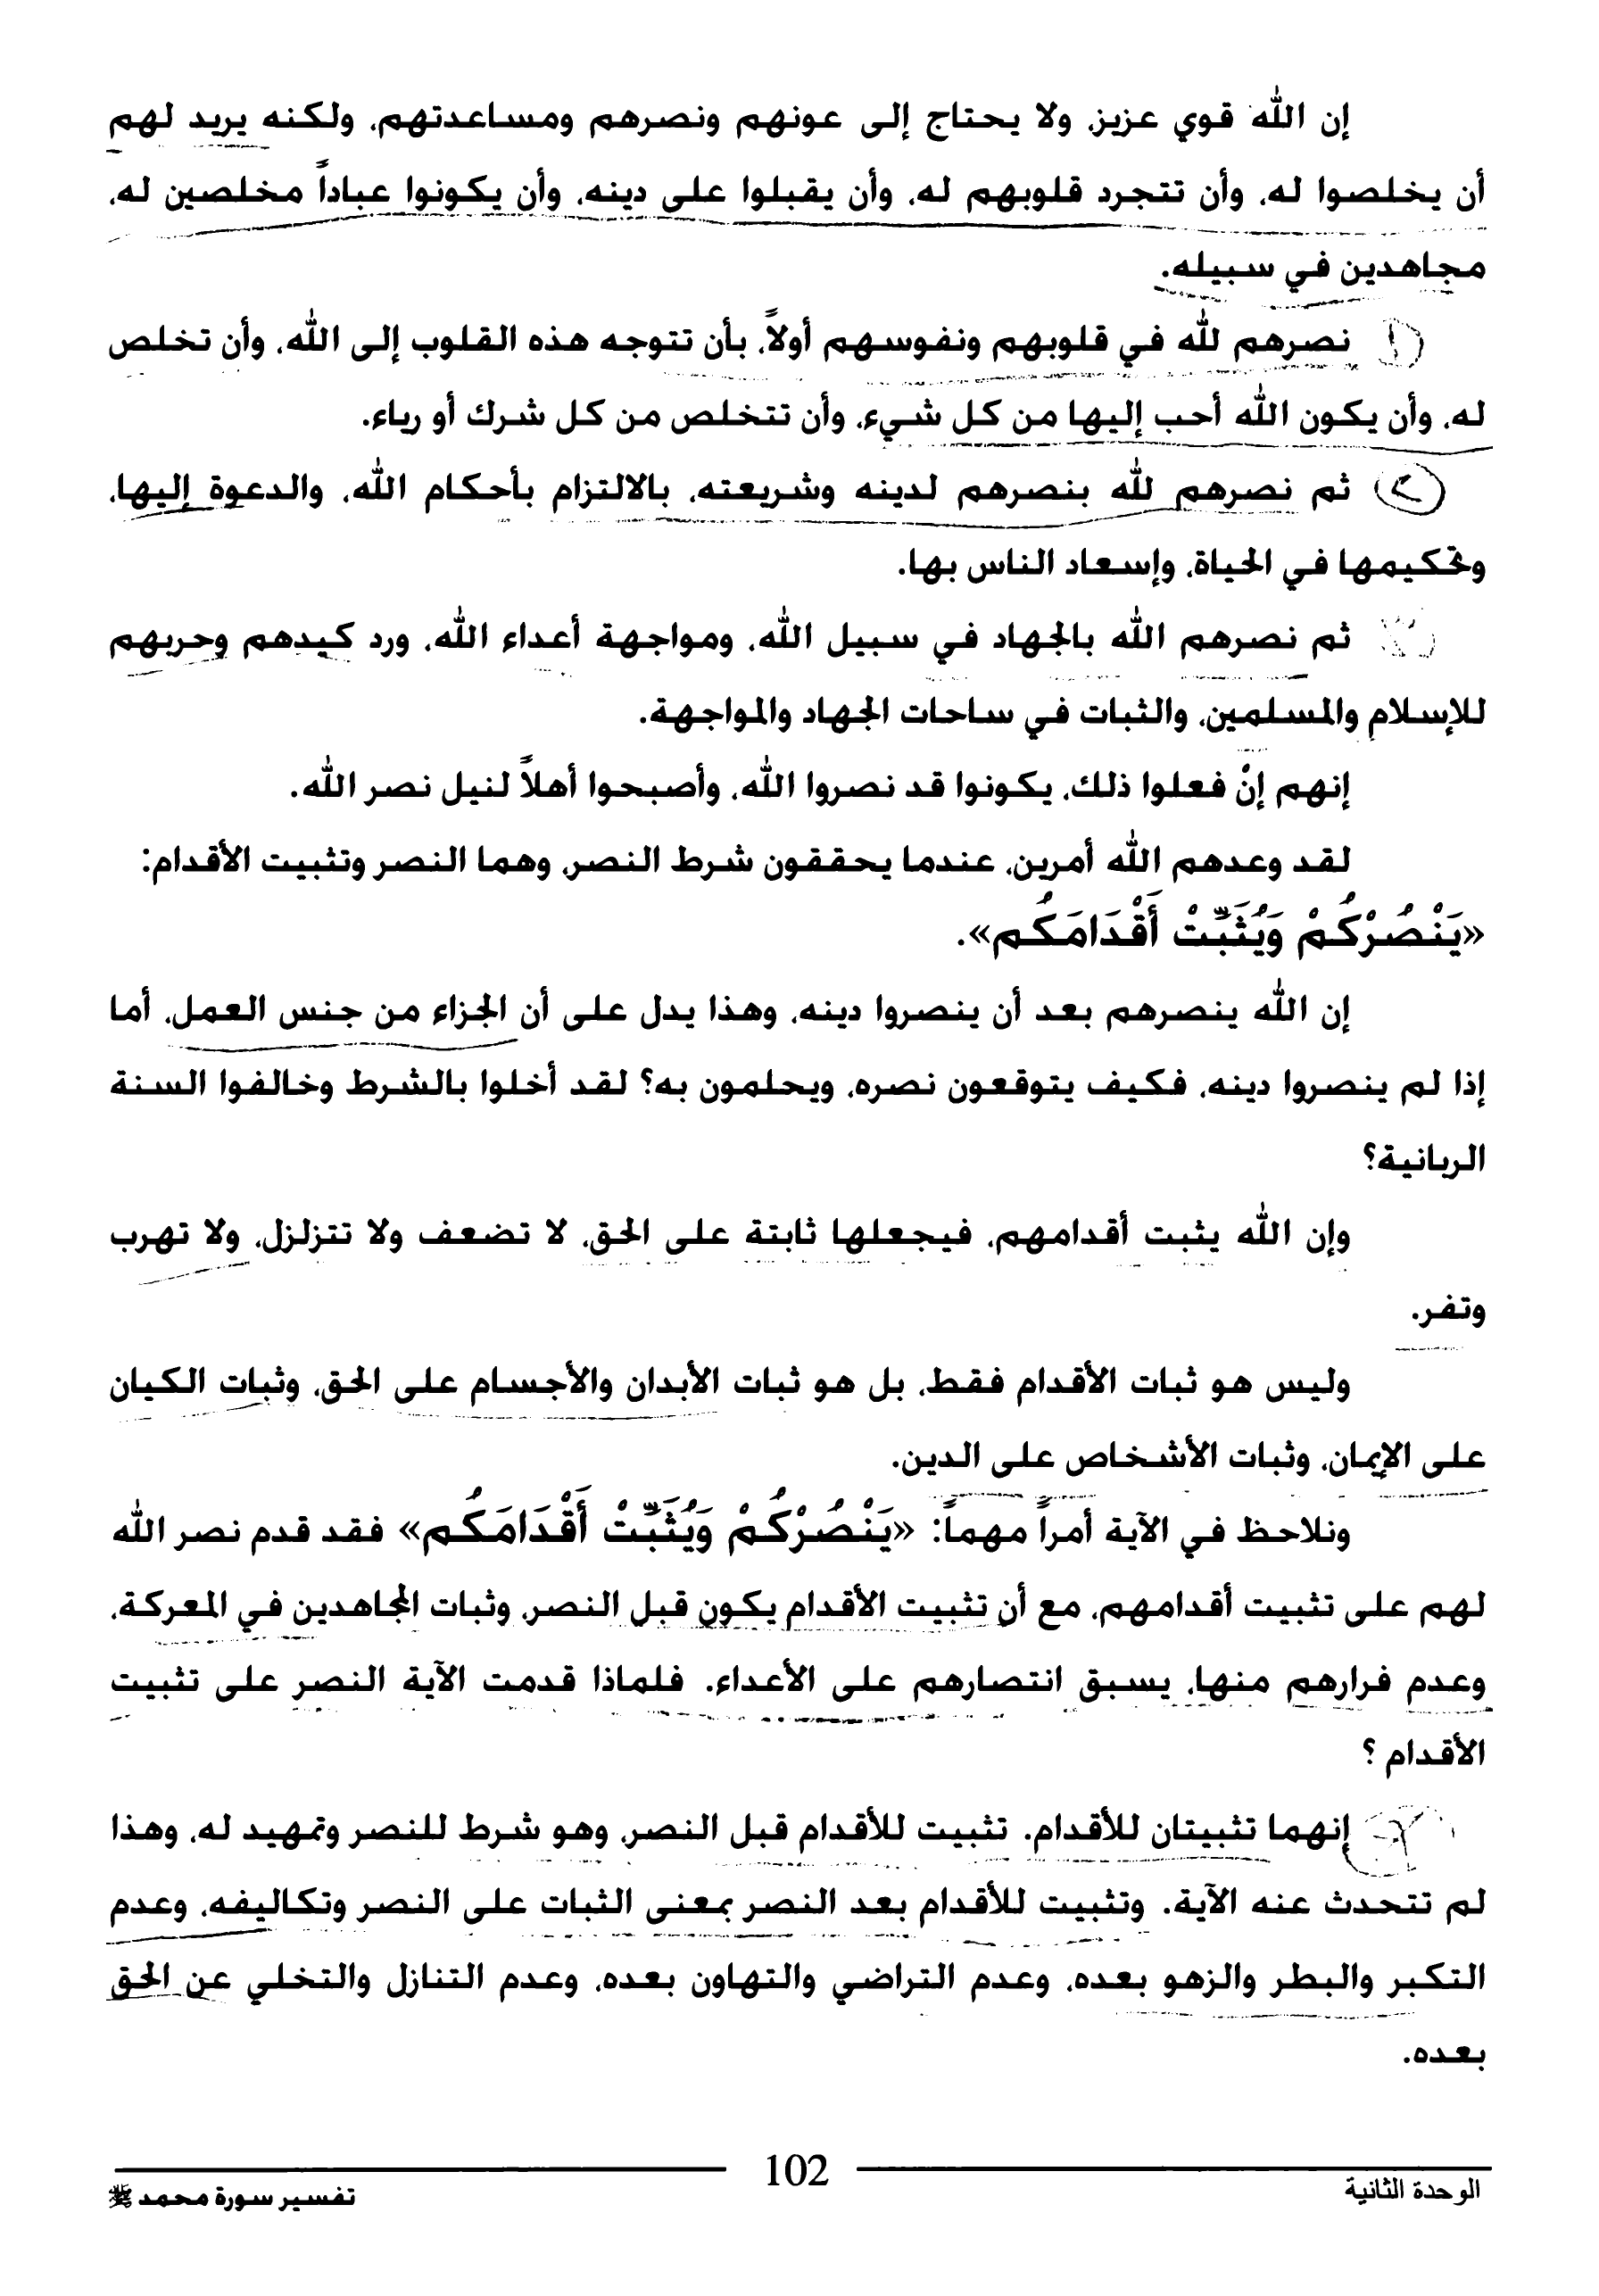 إن الله قوي عزيز، ولا يحتاج إلى عونهم ونصرهم ومساعدتهم، ولكنه يريد لهم
أن يخلصوا له، وأن تتجرد قلوبهم له، وأن يقبلوا على دينه، وأن يكونوا عباداً مخلصين له،
مجاهدين في سبيله.
(١) نصرهم لله في قلوبهم ونفوسهم أولاً، بأن تتوجه هذه القلوب إلى الله، وأن تخلص
له، وأن يكون الله أحب إليها من كل شيء، وأن تتخلص من كل شرك أو رياء.
(٢) ثم نصرهم لله بنصرهم لدينه وشريعته، بالالتزام بأحكام الله، والدعوة إليها،
وتحكيمها في الحياة، وإسعاد الناس بها.
ثم نصرهم الله بالجهاد في سبيل الله، ومواجهة أعداء الله، ورد كيدهم وحربهم
للإسلام والمسلمين، والثبات في ساحات الجهاد والمواجهة.
إنهم إنْ فعلوا ذلك، يكونوا قد نصروا الله، وأصبحوا أهلاً لنيل نصر الله.
لقد وعدهم الله أمرين، عندما يحققون شرط النصر، وهما النصر وتثبيت الأقدام:
«يَنْصُرْكُمْ وَيُثَبِّتْ أَقْدَامَكُم».
إن الله ينصرهم بعد أن ينصروا دينه، وهذا يدل على أن الجزاء من جنس العمل، أما
إذا لم ينصروا دينه، فكيف يتوقعون نصره، ويحلمون به؟ لقد أخلوا بالشرط وخالفوا السنة
الربانية؟
وإن الله يثبت أقدامهم، فيجعلها ثابتة على الحق، لا تضعف ولا تتزلزل، ولا تهرب
وتفر.
وليس هو ثبات الأقدام فقط، بل هو ثبات الأبدان والأجسام على الحق، وثبات الكيان
على الإيمان، وثبات الأشخاص على الدين.
ونلاحظ في الآية أمراً مهماً: «يَنْصُرْكُمْ وَيُثَبِّتْ أَقْدَامَكُم» فقد قدم نصر الله
لهم على تثبيت أقدامهم، مع أن تثبيت الأقدام يكون قبل النصر، وثبات المجاهدين في المعركة،
وعدم فرارهم منها، يسبق انتصارهم على الأعداء. فلماذا قدمت الآية النصر على تثبيت
الأقدام ؟
إنهما تثبيتان للأقدام. تثبيت للأقدام قبل النصر، وهو شرط للنصر وتمهيد له، وهذا
لم تتحدث عنه الآية. وتثبيت للأقدام بعد النصر بمعنى الثبات على النصر وتكاليفه، وعدم
التكبر والبطر والزهو بعده، وعدم التراضي والتهاون بعده، وعدم التنازل والتخلي عن الحق
بعده.
الوحدة الثانية
102
تفسير سورة محمد ﷺ